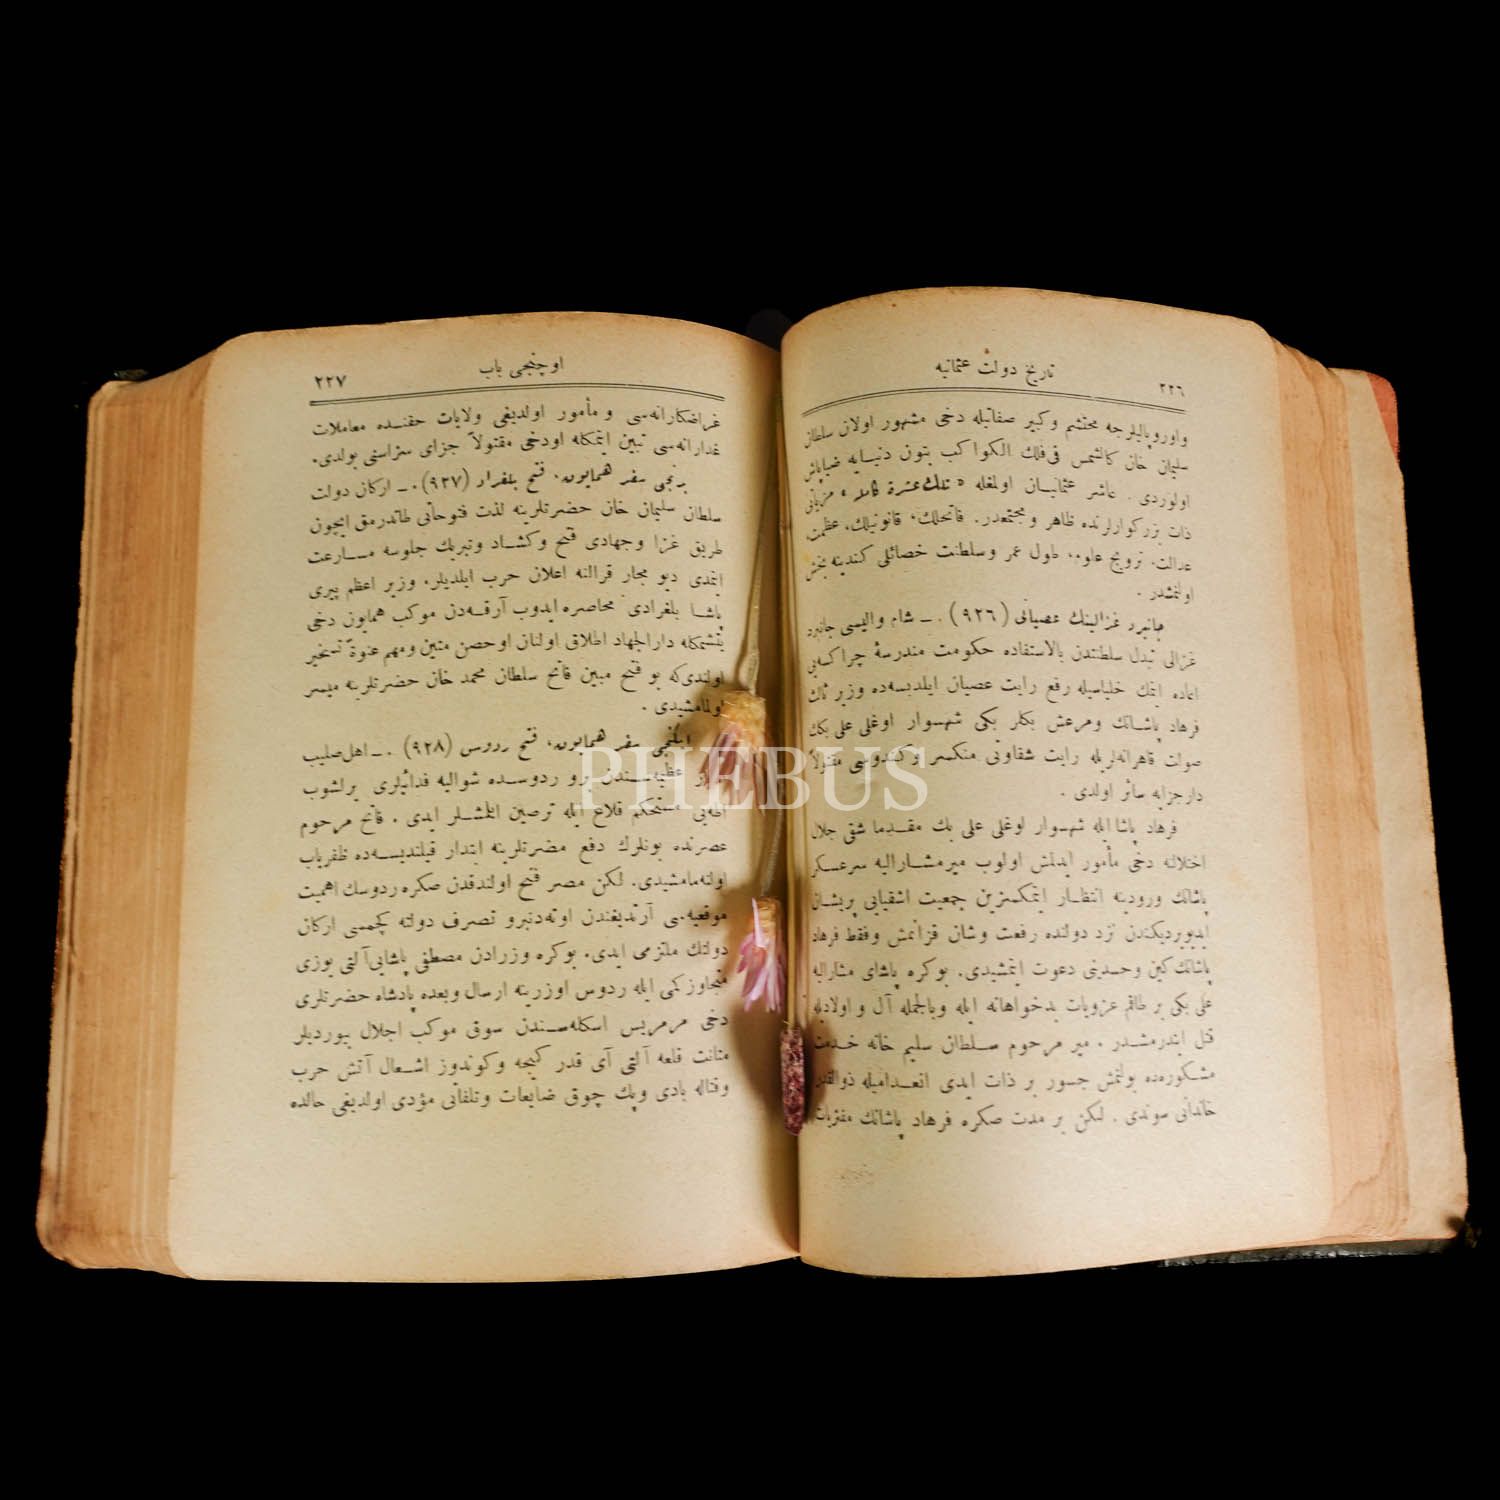 ٢٢٦
تاريخ دولت عثمانيه
واوروپاليلرجه محتشم وكبير صفاتيله دخى مشهور اولان سلطان
سليمان خان كالشمس فى فلك الكواكب بتون دنيايه ضياپاش
اولوردى . عاشر عثمانيان اولمغله «تلك عشرة كامله» مزياتى
ذات بزركوارلرنده ظاهر ومجتمعدر. فاتحلك، قانونيلك، عظمت،
عدالت، ترويج علوم، طول عمر وسلطنت خصائلى كندينه بخش
اولنمشدر .
جانبرد غزالينك عصيانى (٩٢٦) . ـ شام واليسى جانبرد
غزالى تبدل سلطنتدن بالاستفاده حكومت مندرسهٔ چراكسه‌يى
اعاده ايتمك خلياسيله رفع رايت عصيان ايلديسه‌ده وزير ثالث
فرهاد پاشانك ومرعش بكلر بكى شهسوار اوغلى على بكك
صولت قاهرانه‌لريله رايت شقاوتى منكسر وكندوسى مقتولاً
دارجزايه سائر اولدى .
فرهاد پاشا ايله شهسوار اوغلى على بك مقدما شقى جلال
اختلالنه دخى مأمور ايدلمش اولوب ميرمشاراليه سرعسكر
پاشانك ورودينه انتظار ايتمكسزين جمعيت اشقيايى پريشان
ايديويرديكندن نزد دولتده رفعت وشان قزانمش وفقط فرهاد
پاشانك كين وحسدينى دعوت ايتمشيدى. بوكره پاشاى مشاراليه
على بكى بر طاقم عزويات بدخواهانه ايله وبالجمله آل واولاديله
قتل ايتدرمشدر . مير مرحوم سلطان سليم خانه خدمت
مشكوره‌ده بولنمش جسور بر ذات ايدى انعداميله ذوالقدر
خاندانى سوندى . لكن بر مدت صكره فرهاد پاشانك مفتريات
اوچنجى باب
٢٢٧
غراضكارانه‌سى و مأمور اولديغى ولايات حقنده معاملات
غدارانه‌سى تبين ايتمكله اودخى مقتولاً جزاى سزاسنى بولدى.
برنجى سفر همايون، فتح بلغراد (٩٢٧) . ـ اركان دولت
سلطان سليمان خان حضرتلرينه لذت فتوحاتى طاتدرمق ايچون
طريق غزا وجهادى فتح وكشاد وتبريك جلوسه مسارعت
ايتمدى ديو مجار قرالنه اعلان حرب ايلديلر. وزير اعظم پيرى
پاشا بلغرادى محاصره ايدوب آرقه‌دن موكب همايون دخى
يتشمكله دارالجهاد اطلاق اولنان اوحصن متين ومهم عنوةً تسخير
اولندى‌كه بو فتح مبين فاتح سلطان محمد خان حضرتلرينه ميسر
اولمامشيدى .
ايكنجى سفر همايون، فتح ردوس (٩٢٨) . ـ اهل‌صليب
عظيمه‌سندن برو ردوسده شواليه فدائيلرى يرلشوب
اطه‌يى مستحكم قلاع ايله ترصين ايتمشلر ايدى . فاتح مرحوم
عصرنده بونلرك دفع مضرتلرينه ابتدار قيلنديسه‌ده ظفرياب
اولنه‌مامشيدى. لكن مصر فتح اولندقدن صكره ردوسك اهميت
موقعيه‌سى آرتديغندن اوته‌دنبرو تصرف دولته كچمسى اركان
دولتك ملتزمى ايدى. بوكره وزرادن مصطفى پاشايى آلتى يوزى
متجاوز كمى ايله ردوس اوزرينه ارسال وبعده پادشاه حضرتلرى
دخى مرمريس اسكله‌سندن سوق موكب اجلال بيورديلر
متانت قلعه آلتى آى قدر كيجه وكوندوز اشعال آتش حرب
وقتاله بادى وپك چوق ضايعات وتلفاتى مؤدى اولديغى حالده
PHEBUS